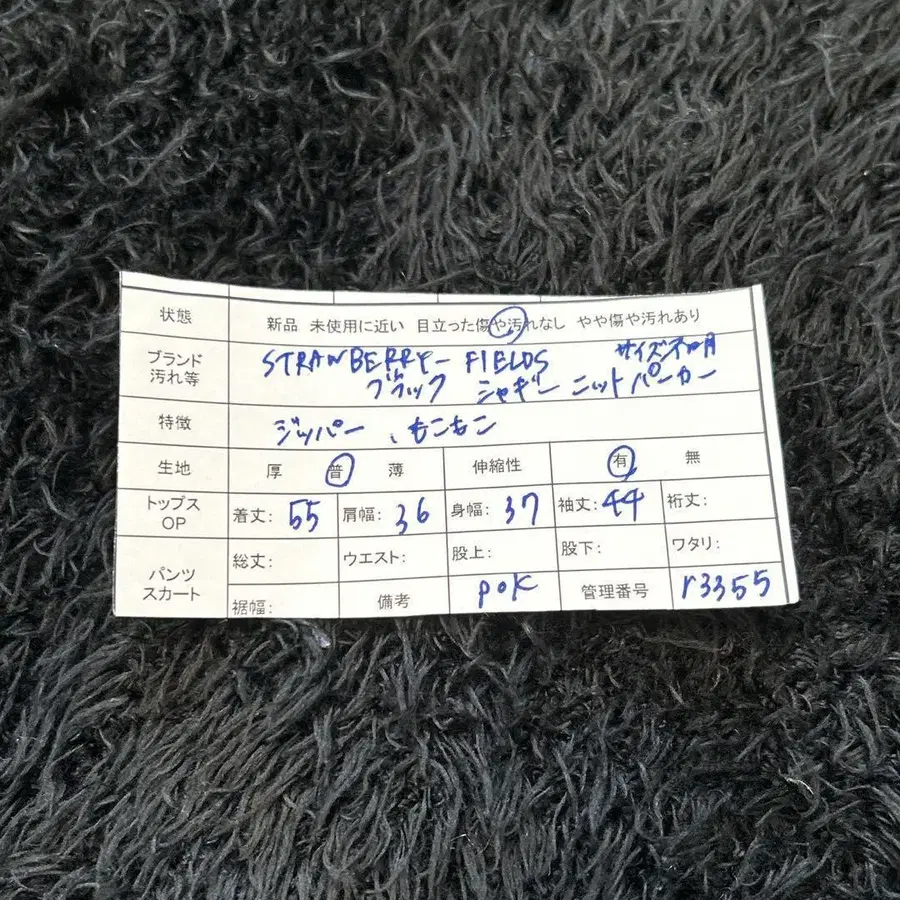 状態 新品 未使用に近い 目立った傷や汚れなし やや傷や汚れあり
ブランド 汚れ等 STRAWBERRY-FIELDS サイズ不明
ブラック シャギーニットパーカー
特徴 ジッパー、もこもこ
生地 厚 普 薄 伸縮性 有 無
トップス OP 着丈: 55 肩幅: 36 身幅: 37 袖丈: 44 裄丈:
パンツ スカート 総丈: ウエスト: 股上: 股下: ワタリ:
裾幅: 備考 pok 管理番号 r3355